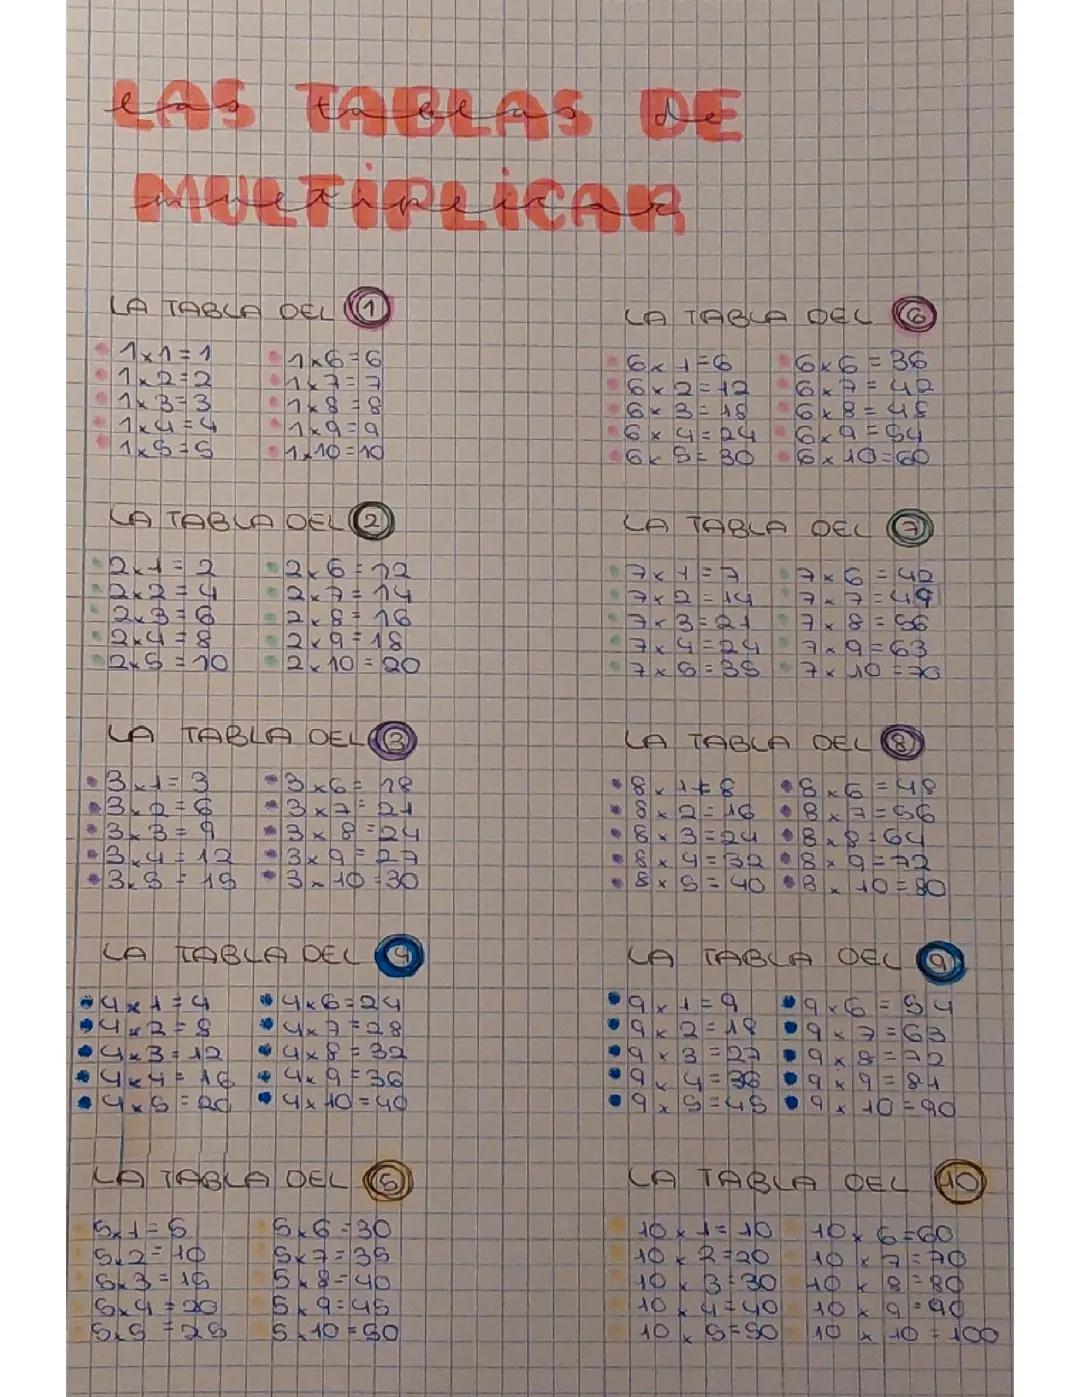 LAS TABLAS DE
las tablas de
MULTIPLICAR
multiplicar
LA TABLA DEL 1
1x1=1
1x2=2
1x3=3
1x4=4
1x5=5
1x6=6
1x7=7
1x8=8
1x9=9
1x10=10
LA TABLA DEL 2
2x1=2
2x2=4
2x3=6
2x4=8
2x5=10
2x6=12
2x7=14
2x8=16
2x9=18
2x10=20
LA TABLA DEL 3
3x1=3
3x2=6
3x3=9
3x4=12
3x5=15
3x6=18
3x7=21
3x8=24
3x9=27
3x10=30
LA TABLA DEL 4
4x1=4
4x2=8
4x3=12
4x4=16
4x5=20
4x6=24
4x7=28
4x8=32
4x9=36
4x10=40
LA TABLA DEL 5
5x1=5
5x2=10
5x3=15
5x4=20
5x5=25
5x6=30
5x7=35
5x8=40
5x9=45
5x10=50
LA TABLA DEL 6
6x1=6
6x2=12
6x3=18
6x4=24
6x5=30
6x6=36
6x7=42
6x8=48
6x9=54
6x10=60
LA TABLA DEL 7
7x1=7
7x2=14
7x3=21
7x4=24
7x5=35
7x6=42
7x7=49
7x8=56
7x9=63
7x10=70
LA TABLA DEL 8
8x1=8
8x2=16
8x3=24
8x4=32
8x5=40
8x6=48
8x7=56
8x8=64
8x9=72
8x10=80
LA TABLA DEL 9
9x1=9
9x2=18
9x3=27
9x4=36
9x5=45
9x6=54
9x7=63
9x8=72
9x9=81
9x10=90
LA TABLA DEL 10
10x1=10
10x2=20
10x3=30
10x4=40
10x5=50
10x6=60
10x7=70
10x8=80
10x9=90
10x10=100